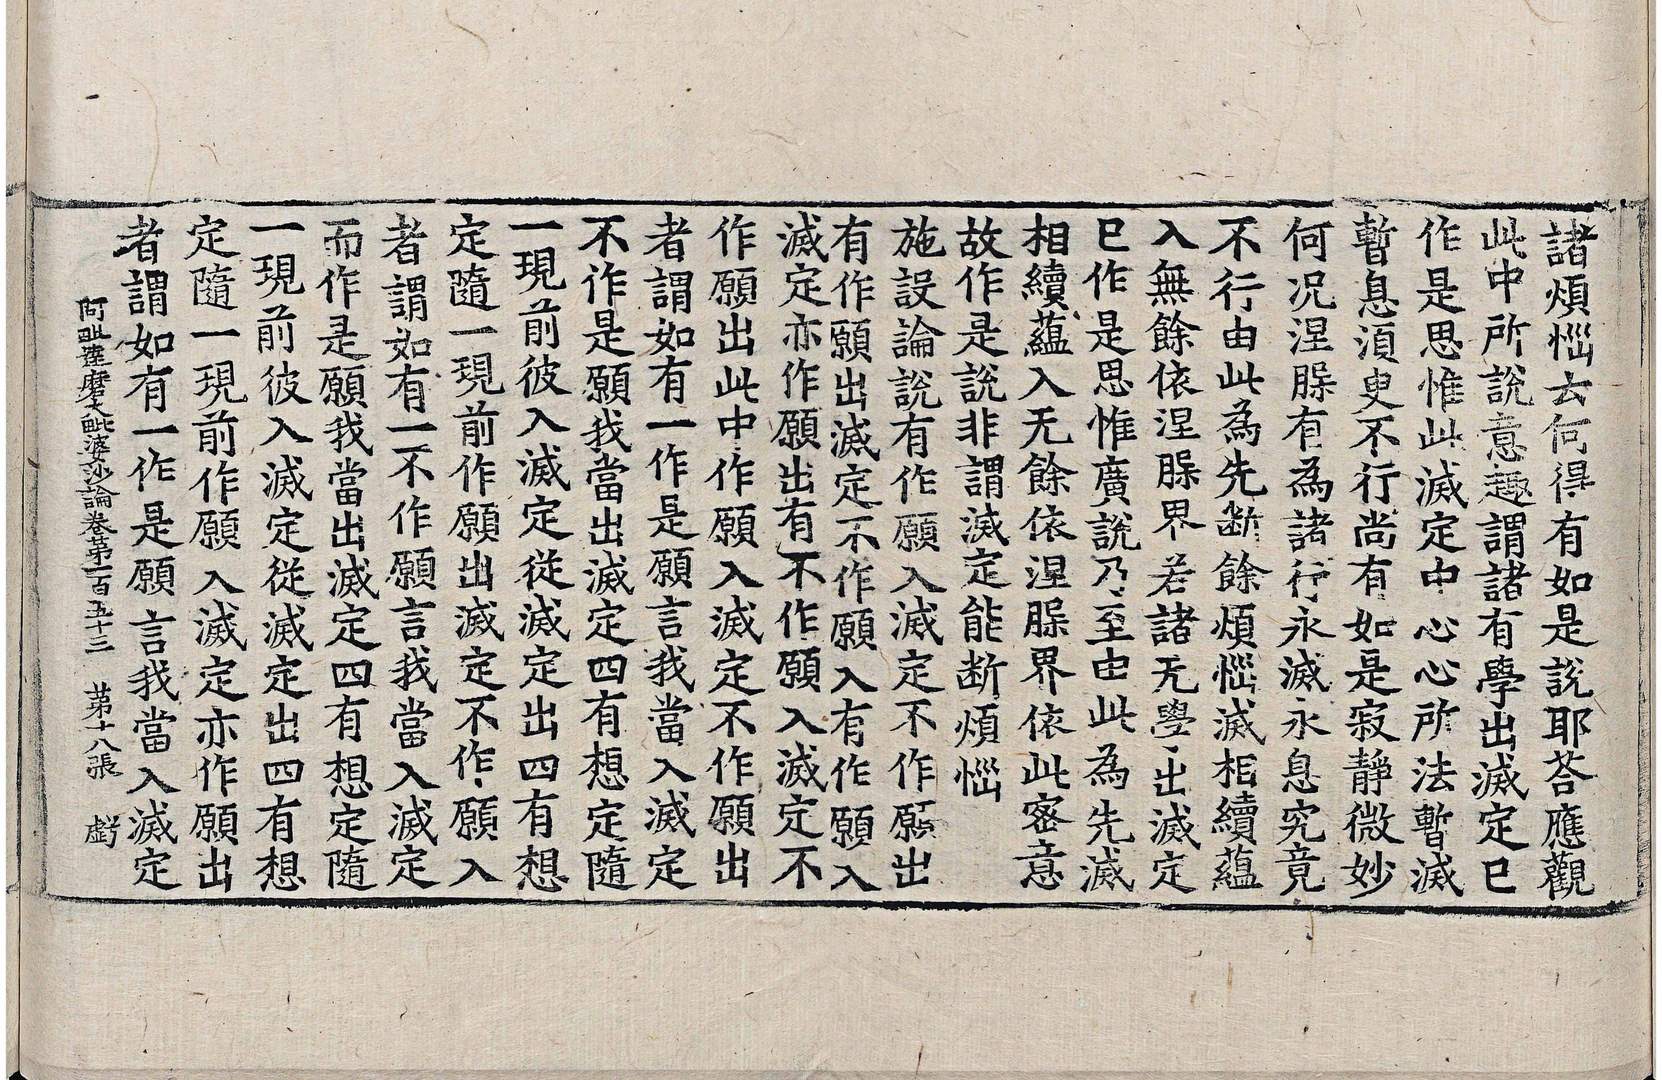 諸煩惱去何得有如是說耶荅應觀
此中所說意趣謂諸有學出滅定已
作是思惟此滅定中心心所法暫滅
暫息湏臾不行尚有如是寂靜微妙
何况涅槃有為諸行永滅永息究竟
不行由此為先斷餘煩惱滅相續蘊
入無餘依涅槃界若諸无學出滅定
已作是思惟廣說乃至由此為先滅
相續蘊入无餘依涅槃界依此密意
故作是說非謂滅定能断煩惱
施設論說有作願入滅定不作願出
有作願出滅定不作願入有作願入
滅定亦作願出有不作願入滅定不
作願出此中作願入滅定不作願出
者謂如有一作是願言我當入滅定
不作是願我當出滅定四有想定隨
一現前彼入滅定從滅定出四有想
定隨一現前作願出滅定不作願入
者謂如有一不作願言我當入滅定
而作是願我當出滅定四有想定隨
一現前彼入滅定從滅定出四有想
定隨一現前作願入滅定亦作願出
者謂如有一作是願言我當入滅定
阿毗達磨大毗婆沙論卷第一百五十三 第十八張 戱